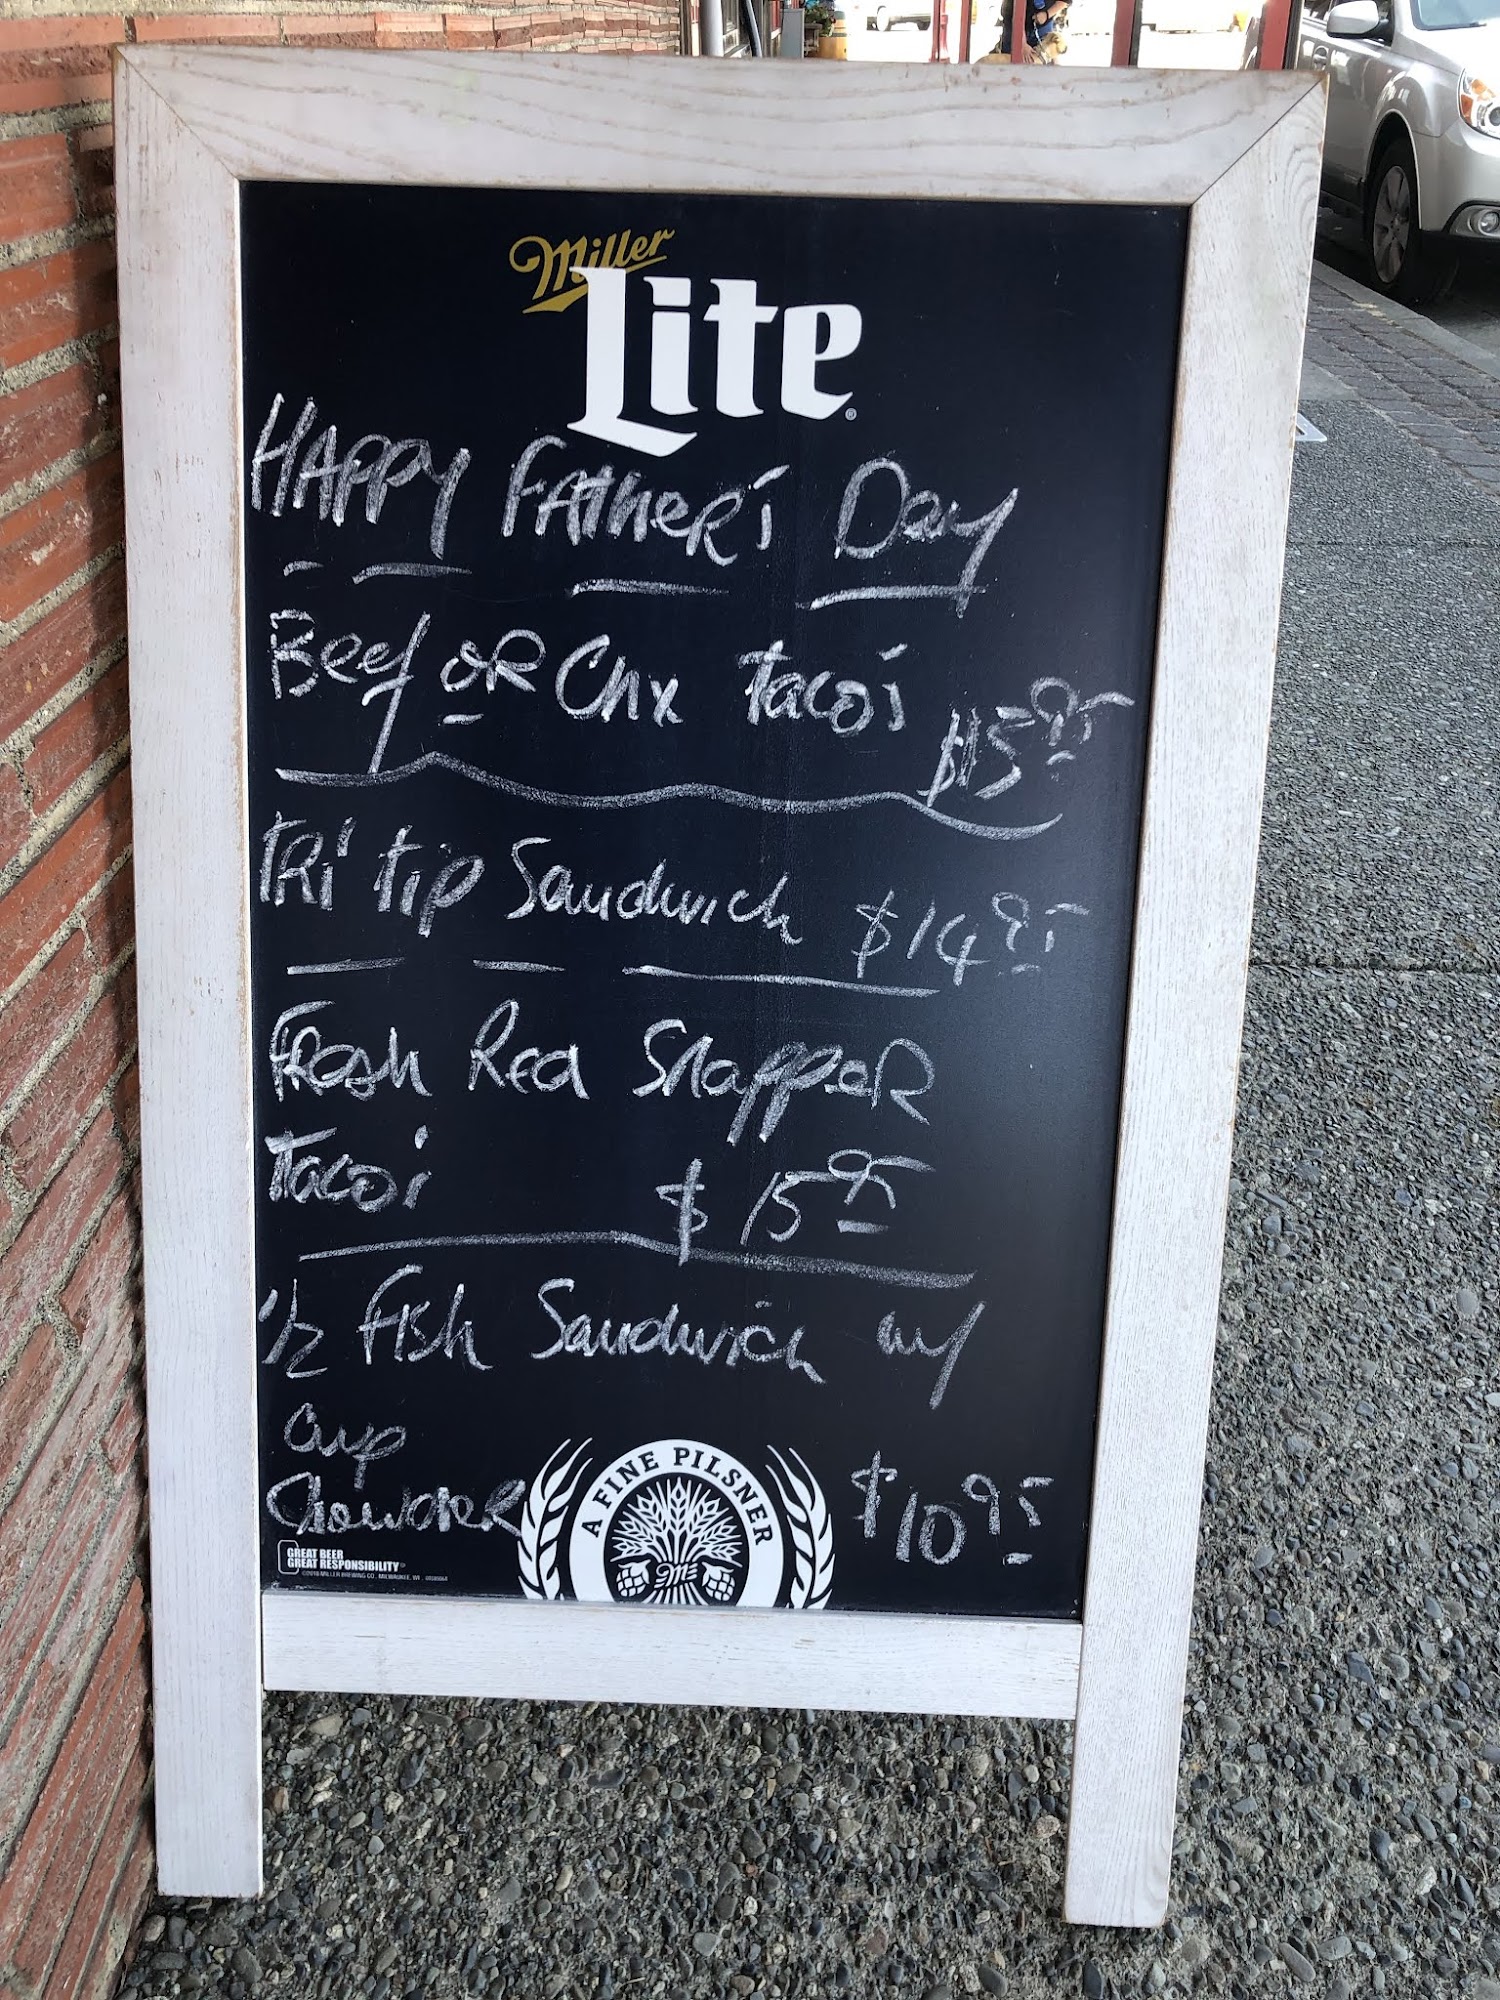 Miller
Lite
HAppy FAther's Day
Beef oR Chx Taco's
$15 95
TRi Tip Sandwich $14 95
Fresh Red SnappeR
Taco's $15 95
1/2 Fish Sandwich w/
cup
ChowdeR $10 95
A FINE PILSNER
GREAT BEER
GREAT RESPONSIBILITY